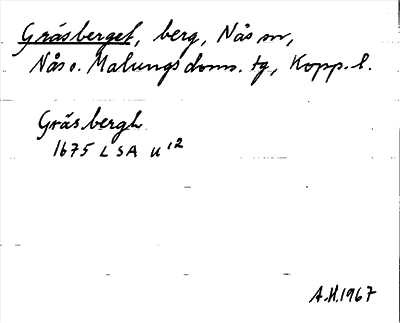 Gräsberget, berg, Nås sn,
Nås o. Malungs doms. tg, Kopp. l.
Gräsbergh
1675 LSA U 12
A.H. 1967